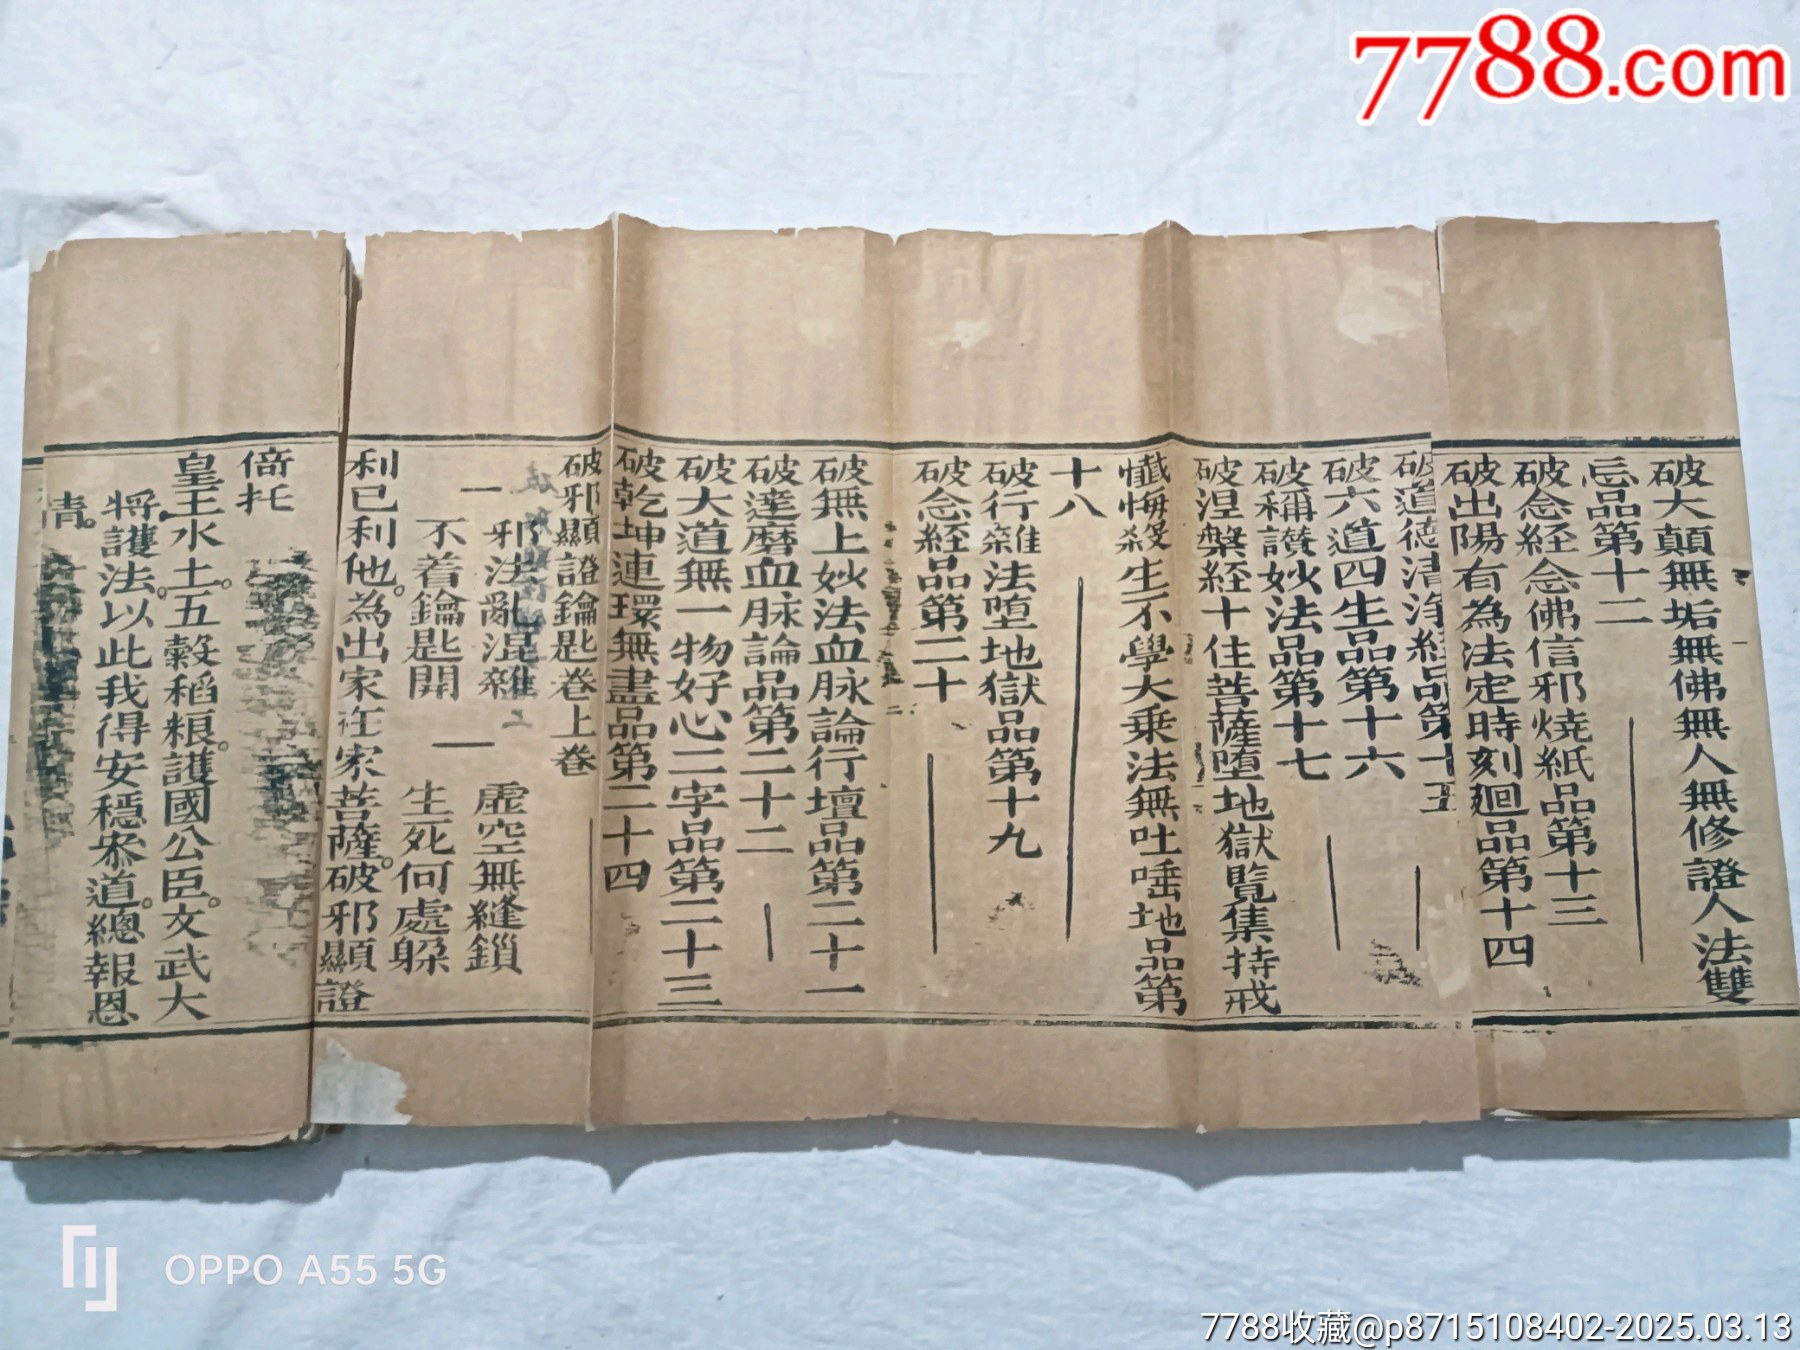 7788.com
破大顛無垢無佛無人無修證人法雙
忌品第十二
破念経念佛信邪燒紙品第十三
破出陽有為法定時刻廻品第十四
破道德清淨経品第十五
破六道四生品第十六
破稱讃妙法品第十七
破涅槃経十住菩薩墮地獄覽集持戒
懺悔殺生不學大乘法無吐唾地品第
十八
破行雜法墮地獄品第十九
破念経品第二十
破無上妙法血脉論行壇品第二十一
破達磨血脉論品第二十二
破大道無一物好心二字品第二十三
破乾坤連環無盡品第二十四
破邪顯證鑰匙卷上卷
一 邪法亂混雜 虛空無縫鎖
不着鑰匙開 一 生死何處躲
利已利他。為出家在家菩薩。破邪顯證
倚托
皇王水土。五穀稻粮。護國公臣。文武大
將護法。以此我得安穩叅道。總報恩
情。
OPPO A55 5G
7788收藏@p8715108402-2025.03.13